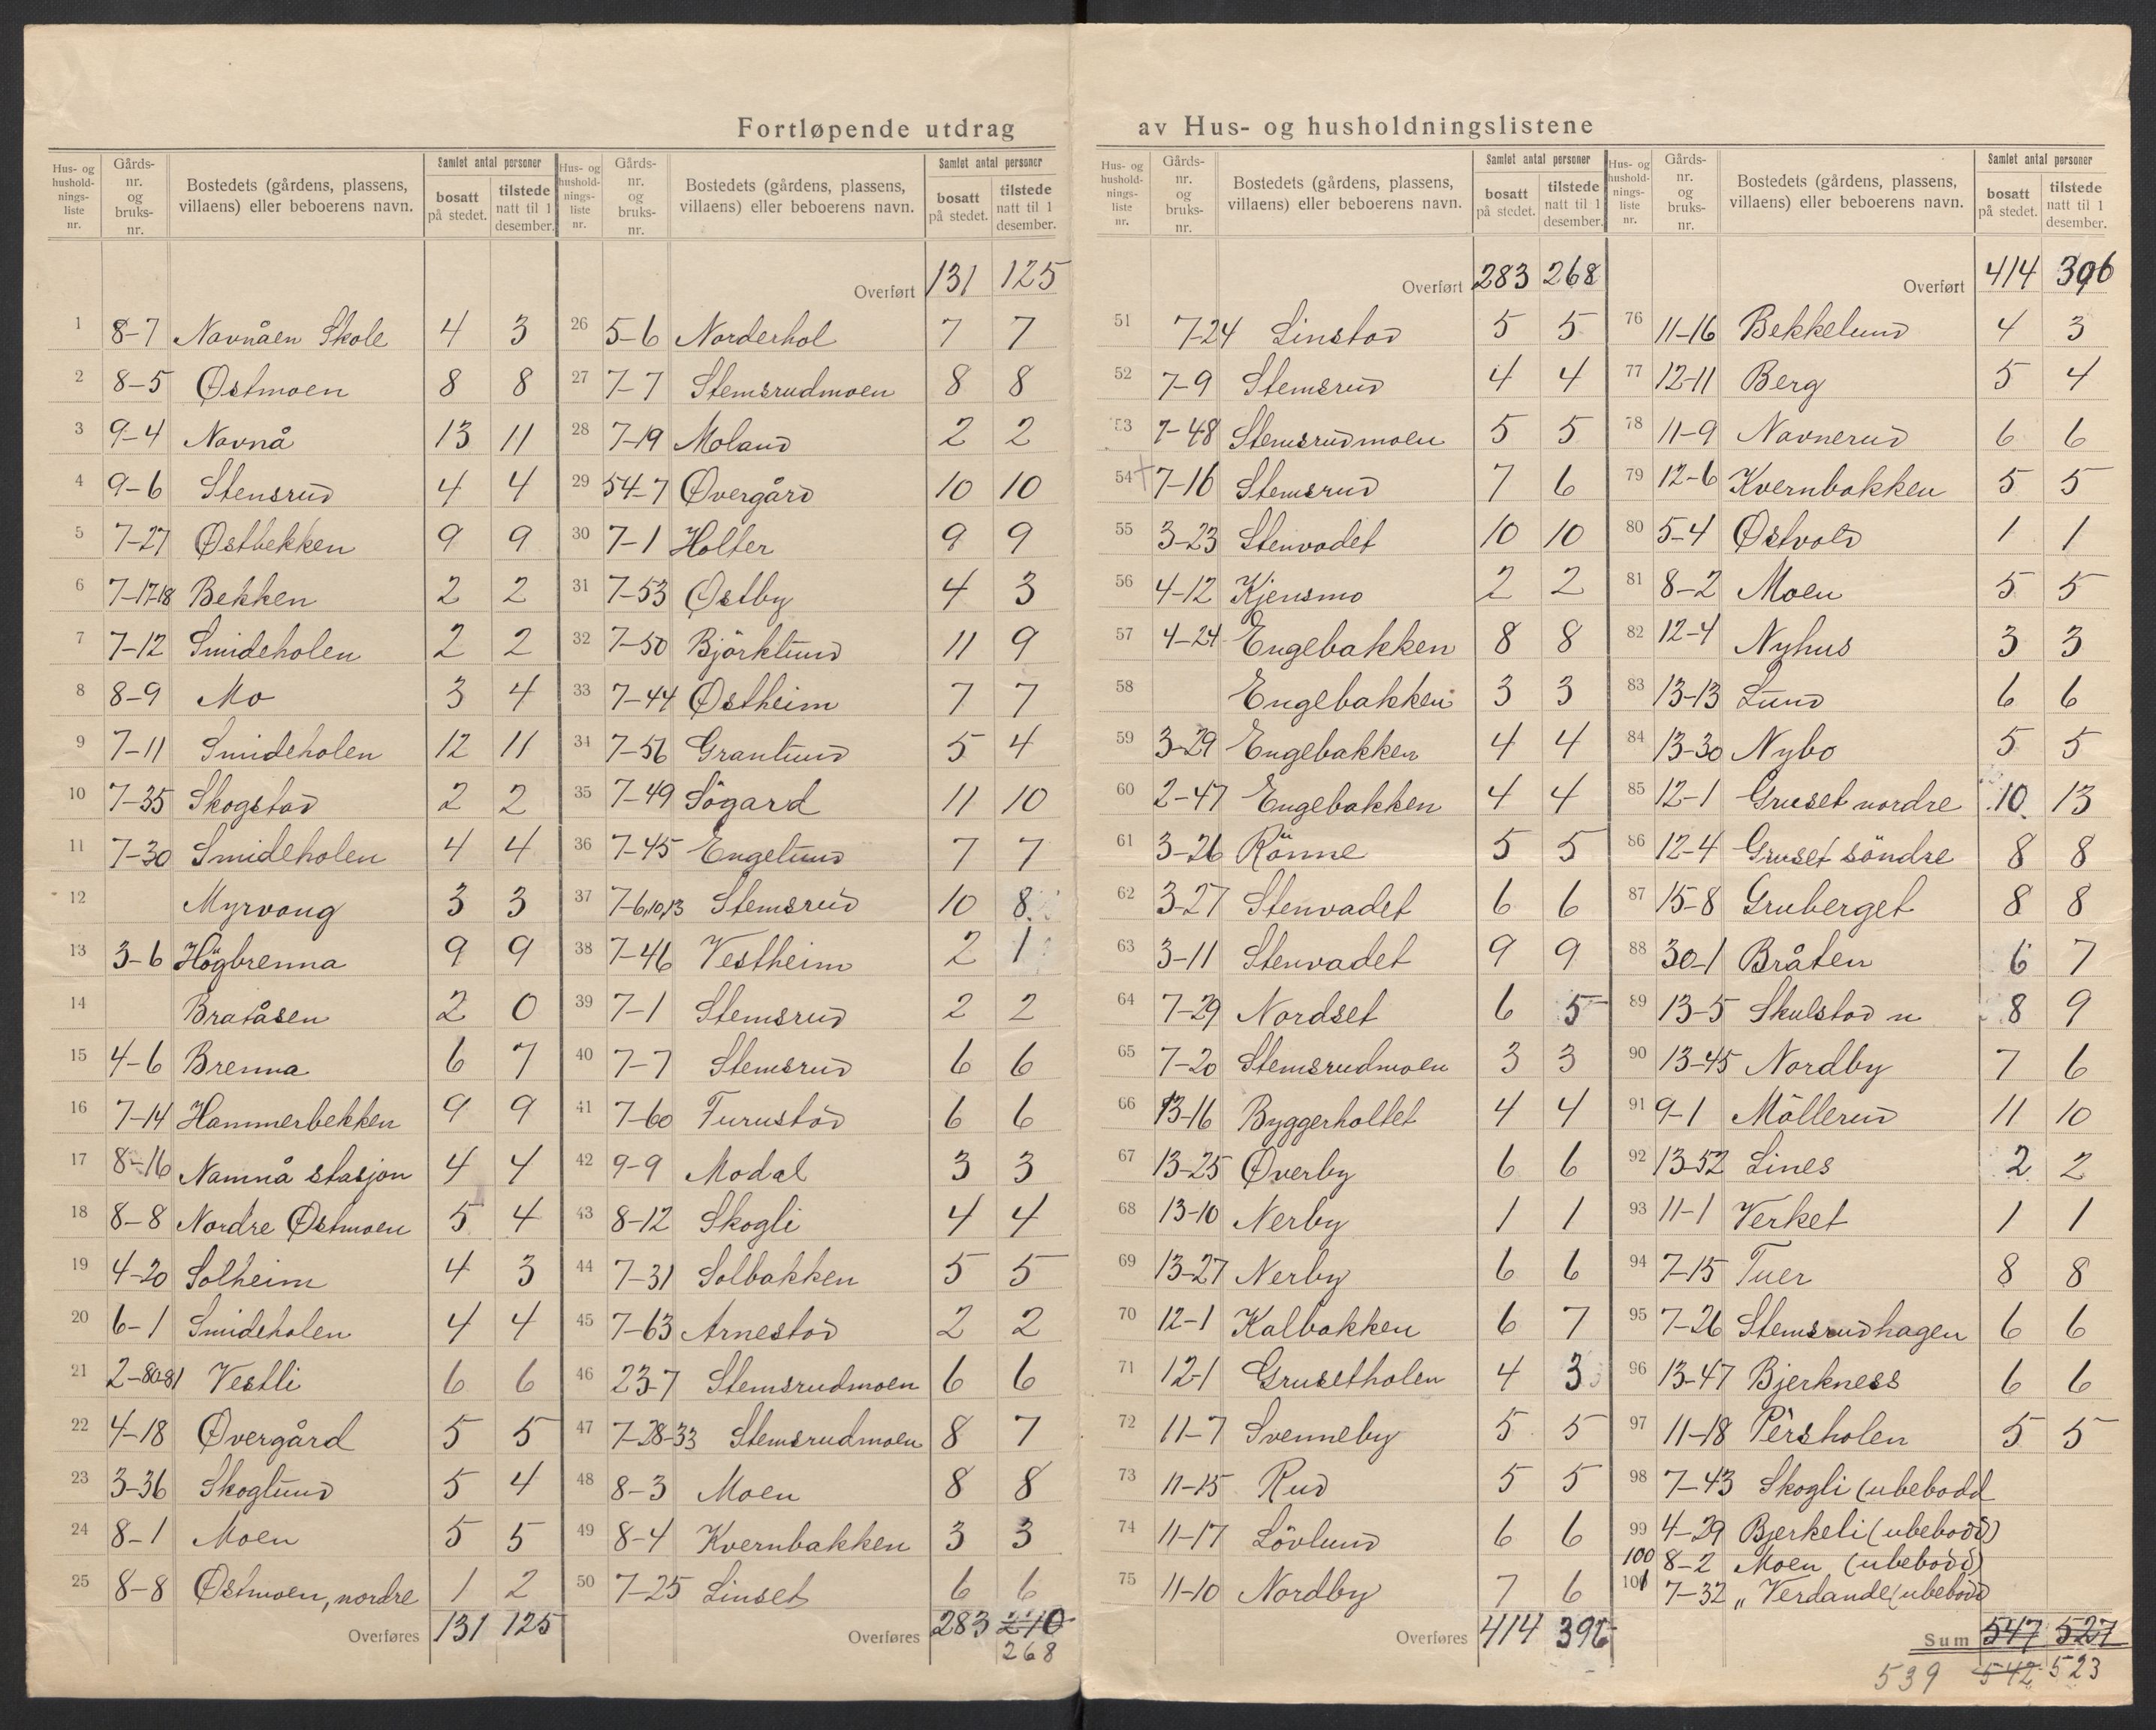 Fortløpende utdrag av Hus- og husholdningslistene
Hus- og hushold-nings-liste nr. Gårds-nr. og bruks-nr. Bostedets (gårdens, plassens, villaens) eller beboerens navn. Samlet antal personer bosatt på stedet. tilstede natt til 1 desember.
1 8-7 Navnåen Skole 4 3
2 8-5 Østmoen 8 8
3 9-4 Navnå 13 11
4 9-6 Stensrud 4 4
5 7-27 Østbekken 9 9
6 7-17-18 Bekken 2 2
7 7-12 Smideholen 2 2
8 8-9 Mo 3 4
9 7-11 Smideholen 12 11
10 7-35 Skogstad 2 2
11 7-30 Smideholen 4 4
12 Myrvang 3 3
13 3-6 Högbrenna 9 9
14 Bratåsen 2 0
15 4-6 Brenna 6 7
16 7-14 Hammerbekken 9 9
17 8-16 Namnå stasjon 4 4
18 8-8 Nordre Østmoen 5 4
19 4-20 Solheim 4 3
20 6-1 Smideholen 4 4
21 2-80-81 Vestli 6 6
22 4-18 Øvergård 5 5
23 3-36 Skoglund 5 4
24 8-1 Moen 5 5
25 8-8 Østmoen, nordre 1 2
Overføres 131 125
Hus- og hushold-nings-liste nr. Gårds-nr. og bruks-nr. Bostedets (gårdens, plassens, villaens) eller beboerens navn. Samlet antal personer bosatt på stedet. tilstede natt til 1 desember.
Overført 131 125
26 5-6 Norderhol 7 7
27 7-7 Stemsrudmoen 8 8
28 7-19 Moland 2 2
29 54-7 Øvergård 10 10
30 7-1 Holter 9 9
31 7-53 Østby 4 3
32 7-50 Björklund 11 9
33 7-44 Østheim 7 7
34 7-56 Granlund 5 4
35 7-49 Sögard 11 10
36 7-45 Engelund 7 7
37 7-6,10,13 Stemsrud 10 8
38 7-46 Vestheim 2 1
39 7-1 Stemsrud 2 2
40 7-7 Stemsrud 6 6
41 7-60 Furustad 6 6
42 9-9 Modal 3 3
43 8-12 Skogli 4 4
44 7-31 Solbakken 5 5
45 7-63 Arnestad 2 2
46 23-7 Stemsrudmoen 6 6
47 7-28-33 Stemsrudmoen 8 7
48 8-3 Moen 8 8
49 8-4 Kvernbakken 3 3
50 7-25 Linset 6 6
Overføres 283 210
268
Hus- og hushold-nings-liste nr. Gårds-nr. og bruks-nr. Bostedets (gårdens, plassens, villaens) eller beboerens navn. Samlet antal personer bosatt på stedet. tilstede natt til 1 desember.
Overført 283 268
51 7-24 Linstad 5 5
52 7-9 Stemsrud 4 4
53 7-48 Stemsrudmoen 5 5
54 7-16 Stemsrud 7 6
55 3-23 Stenvadet 10 10
56 4-12 Kjensmo 2 2
57 4-24 Engebakken 8 8
58 Engebakken 3 3
59 3-29 Engebakken 4 4
60 2-47 Engebakken 4 4
61 3-26 Rönne 5 5
62 3-27 Stenvadet 6 6
63 3-11 Stenvadet 9 9
64 7-29 Nordset 6 5
65 7-20 Stemsrudmoen 3 3
66 13-16 Byggerholtet 4 4
67 13-25 Øverby 6 6
68 13-10 Nerby 1 1
69 13-27 Nerby 6 6
70 12-1 Kalbakken 6 7
71 12-1 Grusetholen 4 3
72 11-7 Svenneby 5 5
73 11-15 Rud 5 5
74 11-17 Lövlund 6 6
75 11-10 Nordby 7 6
Overføres 414 396
Hus- og hushold-nings-liste nr. Gårds-nr. og bruks-nr. Bostedets (gårdens, plassens, villaens) eller beboerens navn. Samlet antal personer bosatt på stedet. tilstede natt til 1 desember.
Overført 414 396
76 11-16 Bekkelund 4 3
77 12-11 Berg 5 4
78 11-9 Navnerud 6 6
79 12-6 Kvernbakken 5 5
80 5-4 Østvold 1 1
81 8-2 Moen 5 5
82 12-4 Nyhus 3 3
83 13-13 Lund 6 6
84 13-30 Nybo 5 5
85 12-1 Gruset nordre 10 13
86 12-4 Gruset söndre 8 8
87 15-8 Gruberget 8 8
88 30-1 Bråten 6 7
89 13-5 Skulstad n 8 9
90 13-45 Nordby 7 6
91 9-1 Möllerud 11 10
92 13-52 Lines 2 2
93 11-1 Verket 1 1
94 7-15 Tuer 8 8
95 7-26 Stemsrudhagen 6 6
96 13-47 Bjerkness 6 6
97 11-18 Persholen 5 5
98 7-43 Skogli (ubebodd
99 4-29 Bjerkeli (ubebodd)
100 8-2 Moen (ubebodd)
101 7-32 „ Verdande (ubebodd
Sum 547 527
539 542 523